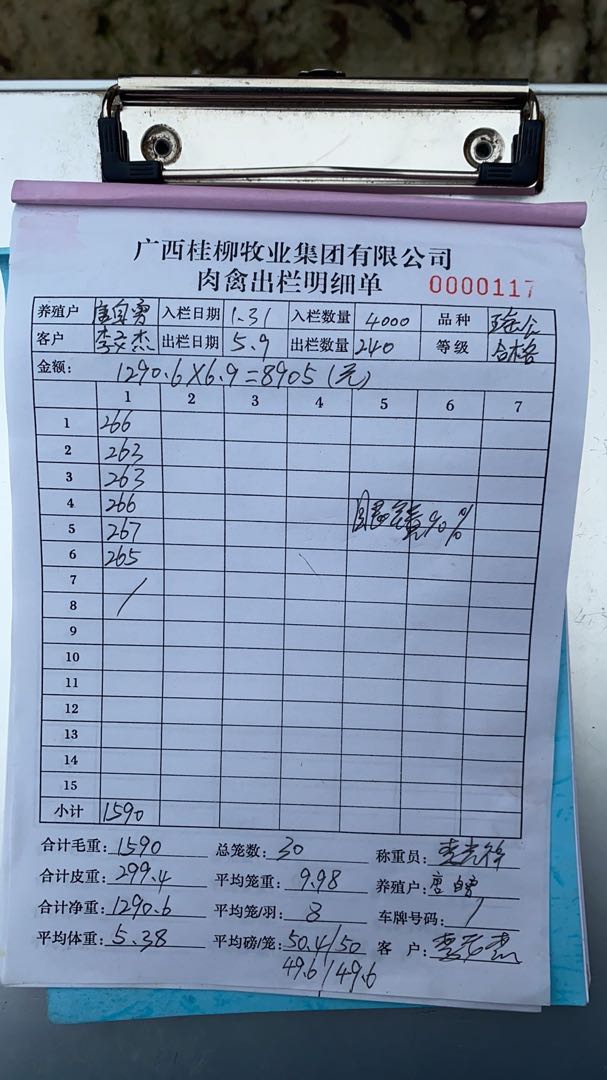 广西桂柳牧业集团有限公司
肉禽出栏明细单 0000117
养殖户 唐自勇 入栏日期 1.31 入栏数量 4000 品种
客户 李文杰 出栏日期 5.9 出栏数量 240 等级 合格
金额: 1290.6×6.9=8905(元)
1 2 3 4 5 6 7
1 266
2 263
3 263
4 266
5 267 90%
6 265
7
8 /
9
10
11
12
13
14
15
小计 1590
合计毛重: 1590 总笼数: 30 称重员:
合计皮重: 299.4 平均笼重: 9.98 养殖户: 唐自勇
合计净重: 1290.6 平均笼/羽: 8 车牌号码: /
平均体重: 5.38 平均磅/笼: 50.4/50 客户: 李文杰
49.6/49.6